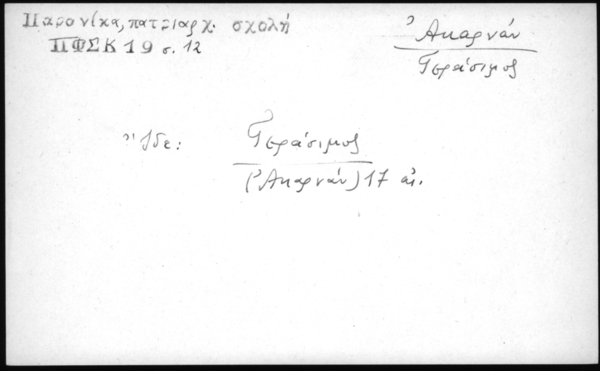 Παρονίκα, πατριαρχ. σχολή
ΠΦΣΚ 19 σ. 12
Ἀκαρνάν
Γεράσιμος
Ἴδε: Γεράσιμος
(Ἀκαρνάν) 17 αἰ.